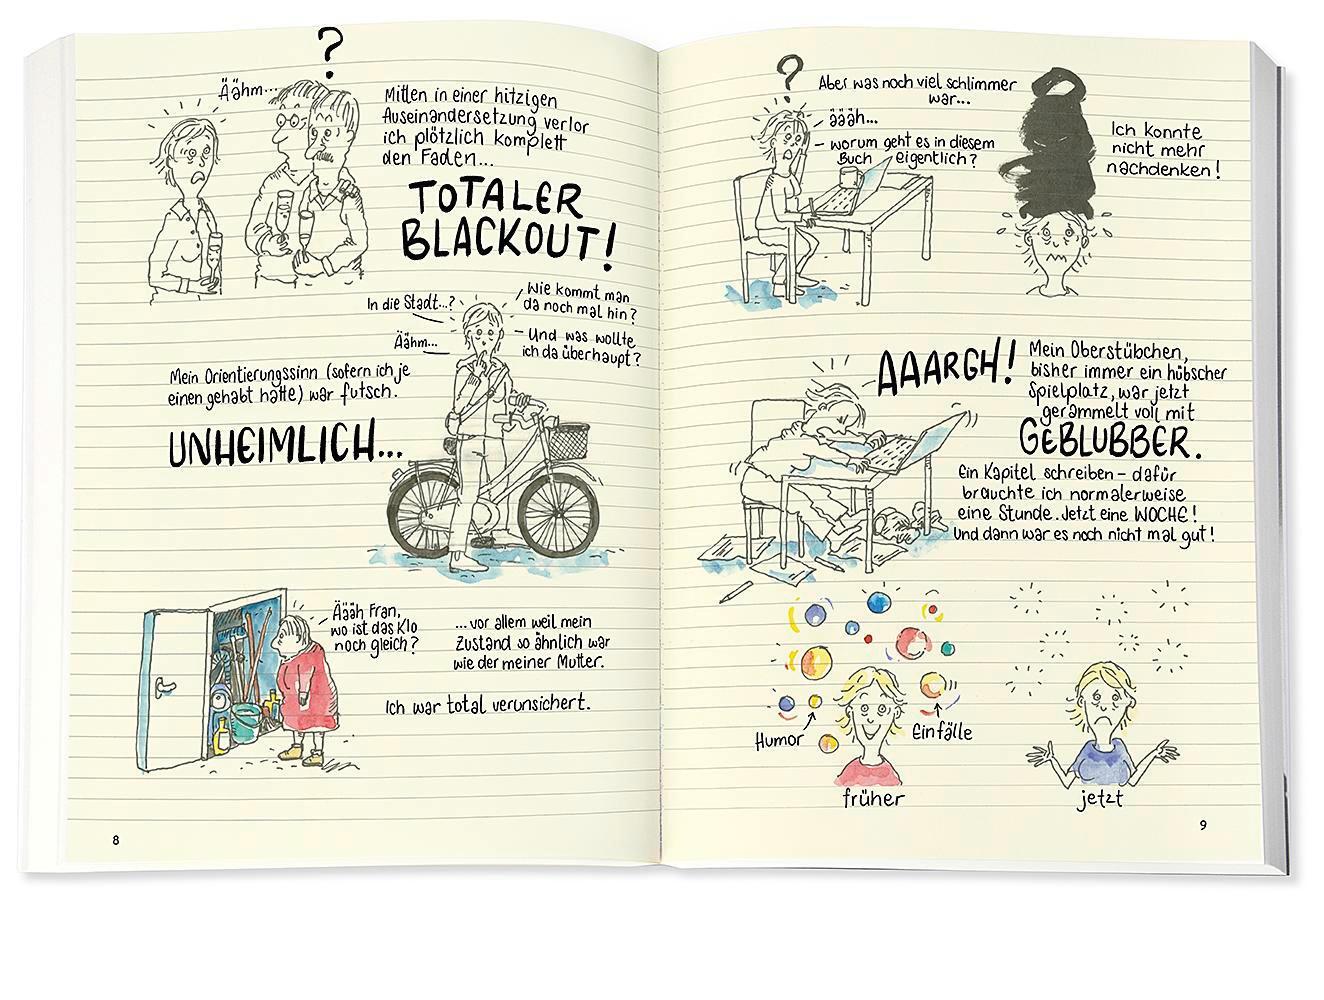 ?
Äähm...
Mitten in einer hitzigen
Auseinandersetzung verlor
ich plötzlich komplett
den Faden...
TOTALER
BLACKOUT!
In die Stadt...?
Äähm...
Wie kommt man
da noch mal hin?
Und was wollte
ich da überhaupt?
Mein Orientierungssinn (sofern ich je
einen gehabt hatte) war futsch.
UNHEIMLICH...
Äääh Fran,
wo ist das Klo
noch gleich?
...vor allem weil mein
Zustand so ähnlich war
wie der meiner Mutter.
Ich war total verunsichert.
8
?
Aber was noch viel schlimmer
war...
äääh...
worum geht es in diesem
Buch eigentlich?
Ich konnte
nicht mehr
nachdenken!
AAARGH!
Mein Oberstübchen,
bisher immer ein hübscher
Spielplatz, war jetzt
gerammelt voll mit
GEBLUBBER.
Ein Kapitel schreiben – dafür
brauchte ich normalerweise
eine Stunde. Jetzt eine WOCHE!
Und dann war es noch nicht mal gut!
Humor
Einfälle
früher
jetzt
9